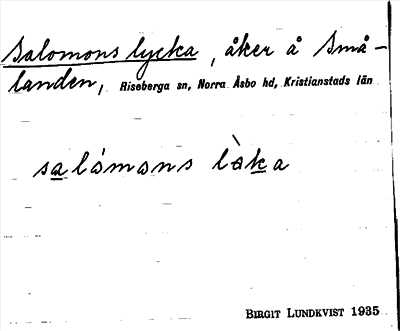 Salomons lycka, åker å Små-
landen, Riseberga sn, Norra Åsbo hd, Kristianstads län
salòmons lòka
BIRGIT LUNDKVIST 1935